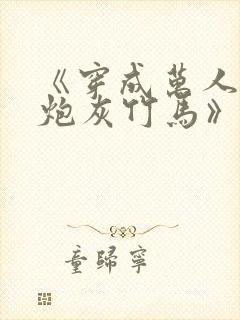 《穿成萬人
炮灰竹馬》
童歸寧